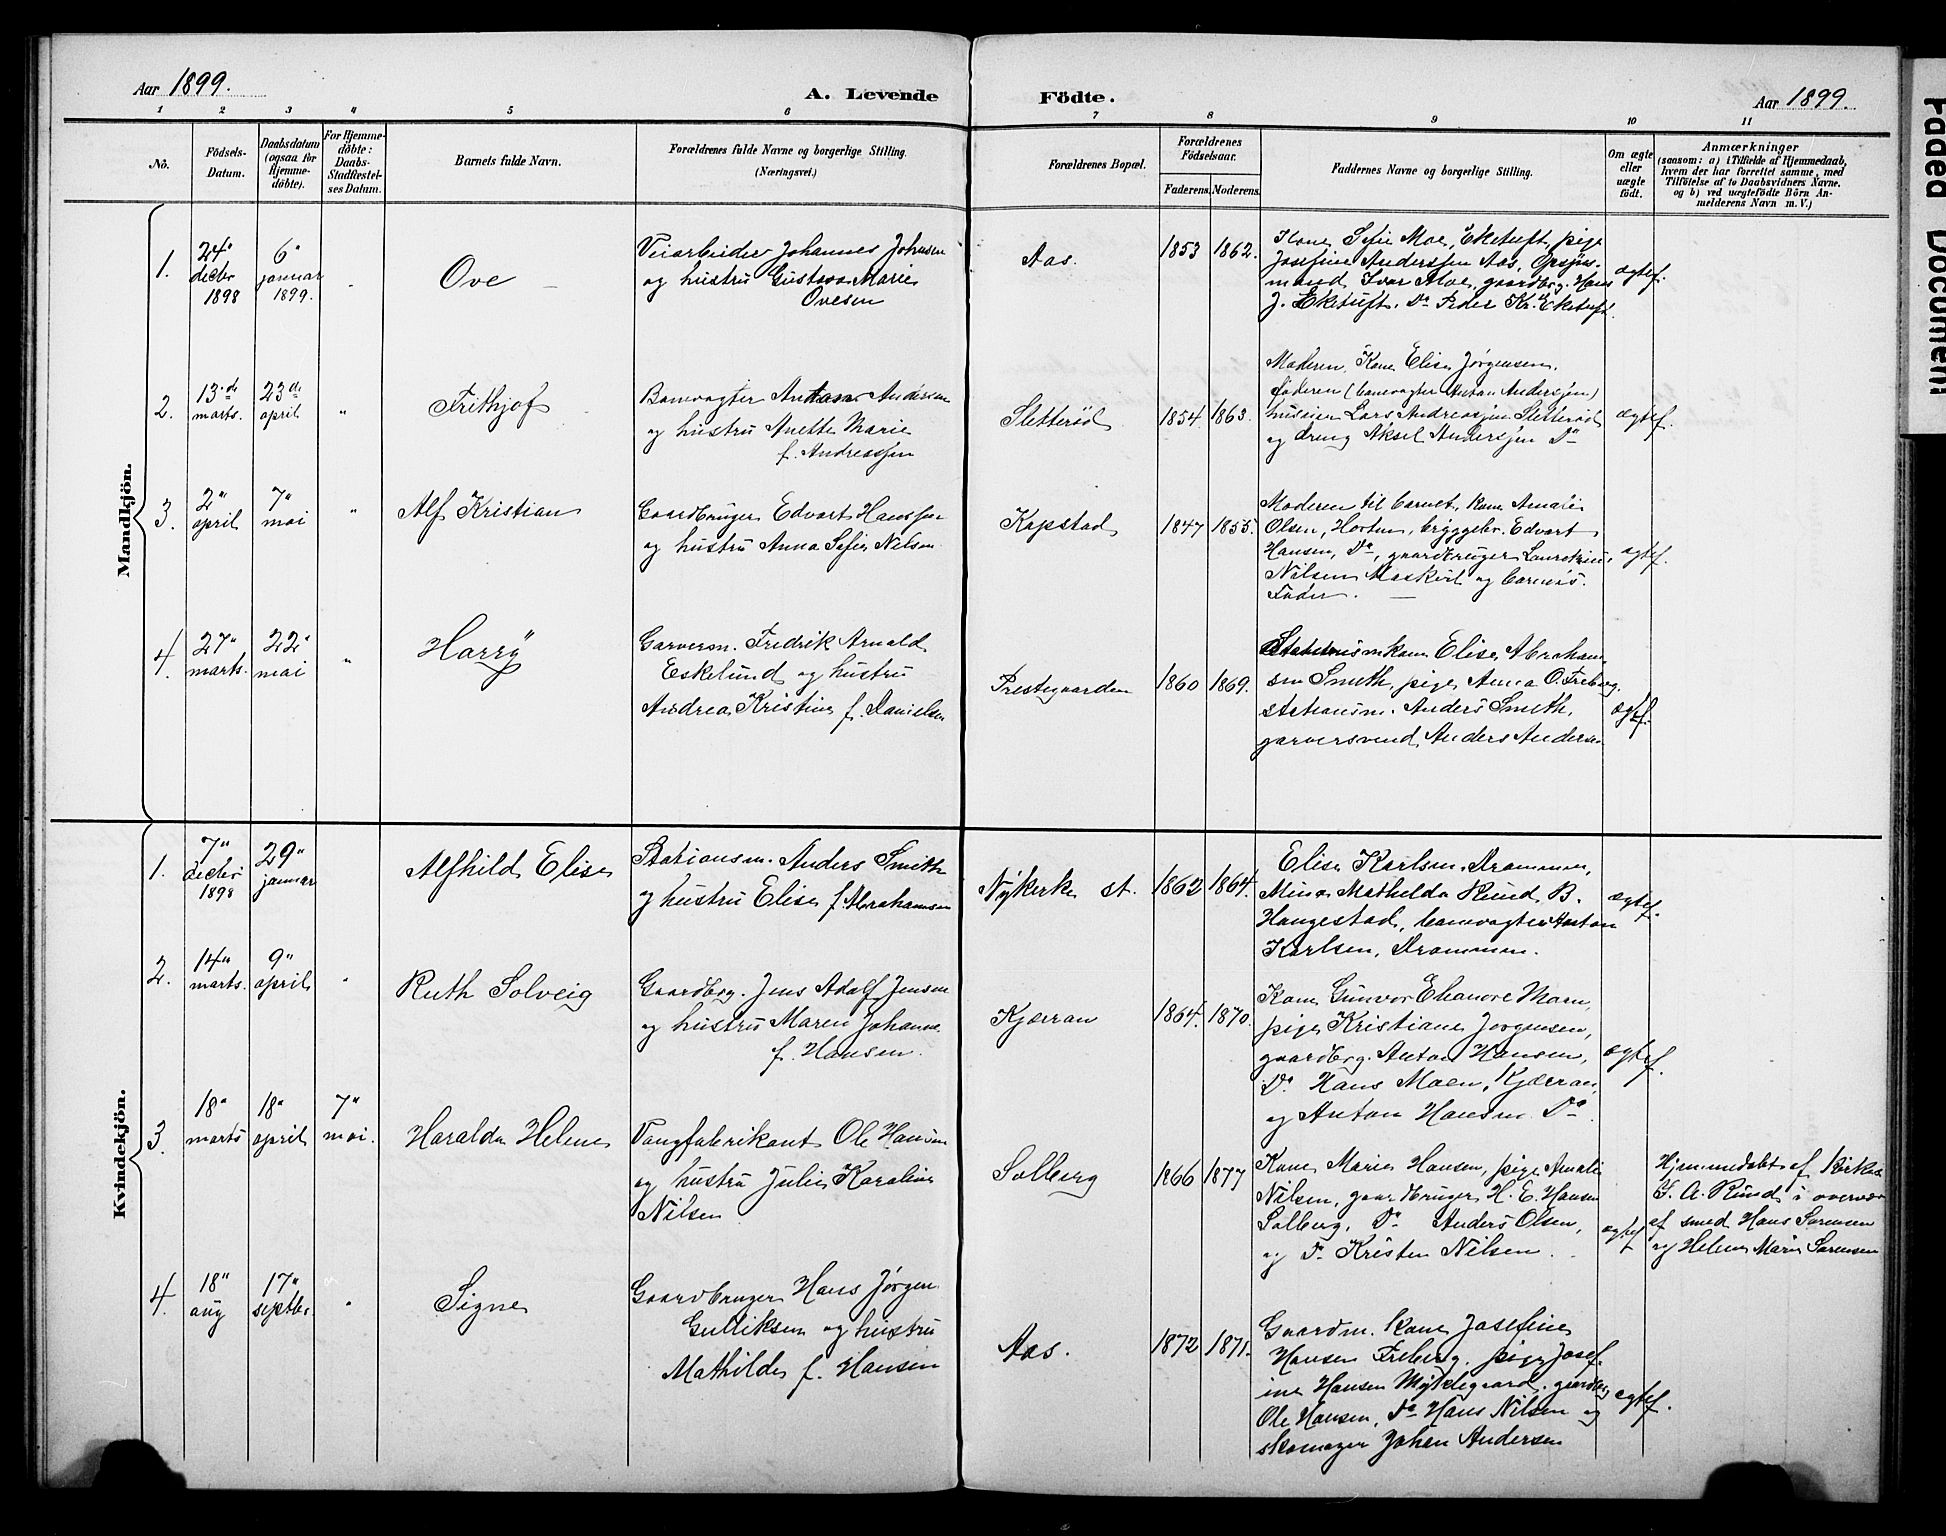 Aar 1899.
A. Levende
Födte.
Aar 1899.
1 2 3 4 5 6 7 8 9 10 11
No.
Födsels-
Datum.
Daabsdatum
(ogsaa for
Hjemme-
döbte).
For Hjemme-
döbte:
Daabs-
Stadfæstel-
ses Datum.
Barnets fulde Navn.
Forældrenes fulde Navne og borgerlige Stilling.
(Næringsvei.)
Forældrenes Bopæl.
Forældrenes
Födselsaar.
Faderens. Moderens.
Faddernes Navne og borgerlige Stilling.
Om ægte
eller
uægte
födt.
Anmærkninger
(saasom: a) i Tilfælde af Hjemmedaab,
hvem der har forrettet samme, med
Tilföielse af to Daabsvidners Navne.
og b) ved uægtefödte Börn An-
melderens Navn m. V.)
Mandkjön.
1.
24"
decbr
1898
6"
januar
1899.
Ove
Veiarbeider Johannes Johnsen
og hustru Gustava Marie
Ovesen
Aas.
1853 1862.
Kone Sofie Moe, Eketuft, pige
Josefine Anderssen Aas, Opsyns-
mand Ivar Moe, gaardbrg. Hans
J. Eketuft. Do Peder Kr. Eketuft.
ægtef.
2.
13de
marts.
23de
april
"
Frithjof
Banevogter Anton Andersen
og hustru Anette Marie
f. Andreassen
Sletterød
1854 1863.
Moderen, Kone Elise Jørgensen,
Faderen (banevogter Anton Anderssen)
huseier Lars Andreassen Sletterød
og dreng Aksel Anderssen Do
ægtef.
3.
2"
april
7"
mai
"
Alf Kristian
Gaardbruger Edvart Hanssen
og hustru Anna Sofie Nilsen
Kopstad
1847 1855.
Moderen til barnet, kone Amalie
Olsen, Horten, bryggebr. Edvart
Hansen, Do, gaardbruger Lauretzius
Nilsen Maskvil og barnets
Fader.
ægtef.
4.
27"
marts.
22"
mai
"
Harry
Garversv. Fredrik Arnold
Eskelund og hustru
Andrea Kristine f. Danielsen
Prestegaarden
1860 1869.
Stationsm kone Elise Abraham
sen Smith, pige Anna O. Freberg,
stationsm. Anders Smith,
garversvend Anders Andersen
ægtf.
Kvindekjön.
1.
7"
decbr
1898
29"
januar
Alfhild Elise
Stationsm. Anders Smith
og hustru Elise f. Abrahamsen
Nykirke st.
1862 1864.
Elise Karlsen, Drammen,
Mina Mathilda Rund, B.
Haugestad, banevogter Anton
Karlsen, Drammen.
ægtef.
2.
14"
marts.
9"
april
"
Ruth Solveig
Gaardbrg. Jens Adolf Jensen
og hustru Maren Johanne
f. Hansen.
Kjærran
1864. 1870.
Kone Gunvor Elianore Moen,
pige Kristiane Jørgensen,
gaardbrg. Anton Hansen,
Do Hans Moen, Kjærran,
og Anton Hansen Do.
ægtef.
3.
18"
marts
18"
april
7"
mai.
Haralda Helene
Vognfabrikant Ole Hansen
og hustru Julie Karoline
Nilsen
Solberg
1866 1877
Kone Marie Hansen, pige Amalie
Nilsen, gaardbruger H. E. Hansen
Solberg, Do Anders Olsen,
og Do Kristen Nilsen.
ægtef
Hjemmedøbt af Kirkes.
G. A. Rund i overvær
af smed Hans Sørensen
og Helene Marie Sørensen
4.
18"
aug
17"
septbr.
"
Signe
Gaardbruger Hans Jørgen
Gulliksen og hustru
Mathilde f. Hansen
Aas.
1872 1871.
Gaardm. kone Josefine
Hansen Freberg. pige Josef-
ine Hansen Myklegaard. gaardbrg
Ole Hansen, Do Hans Nilsen og
skomager Johan Andersen
ægtef.
Faded Document